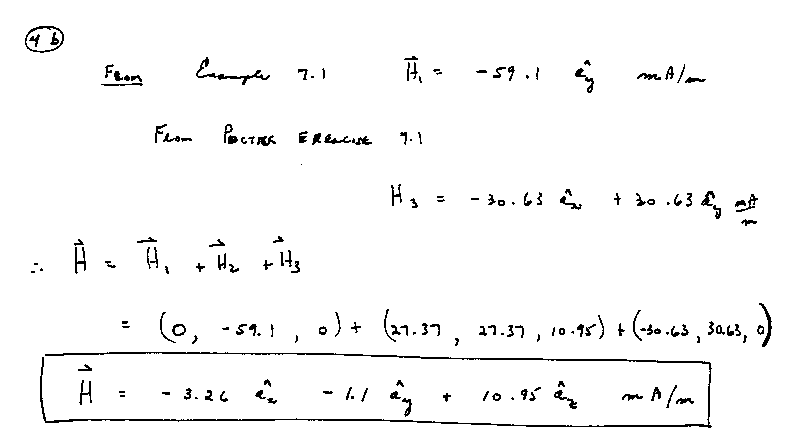 4 b
From Example 7.1 H⃗₁ = -59.1 â_y mA/m
From PRCTICE EXERCISE 7.1
H₃ = -30.63 â_x + 30.63 â_y mA/m
∴ H⃗ = H⃗₁ + H⃗₂ + H⃗₃
= (0, -59.1, 0) + (27.37, 27.37, 10.95) + (-30.63, 30.63, 0)
H⃗ = -3.26 â_x - 1.1 â_y + 10.95 â_z mA/m